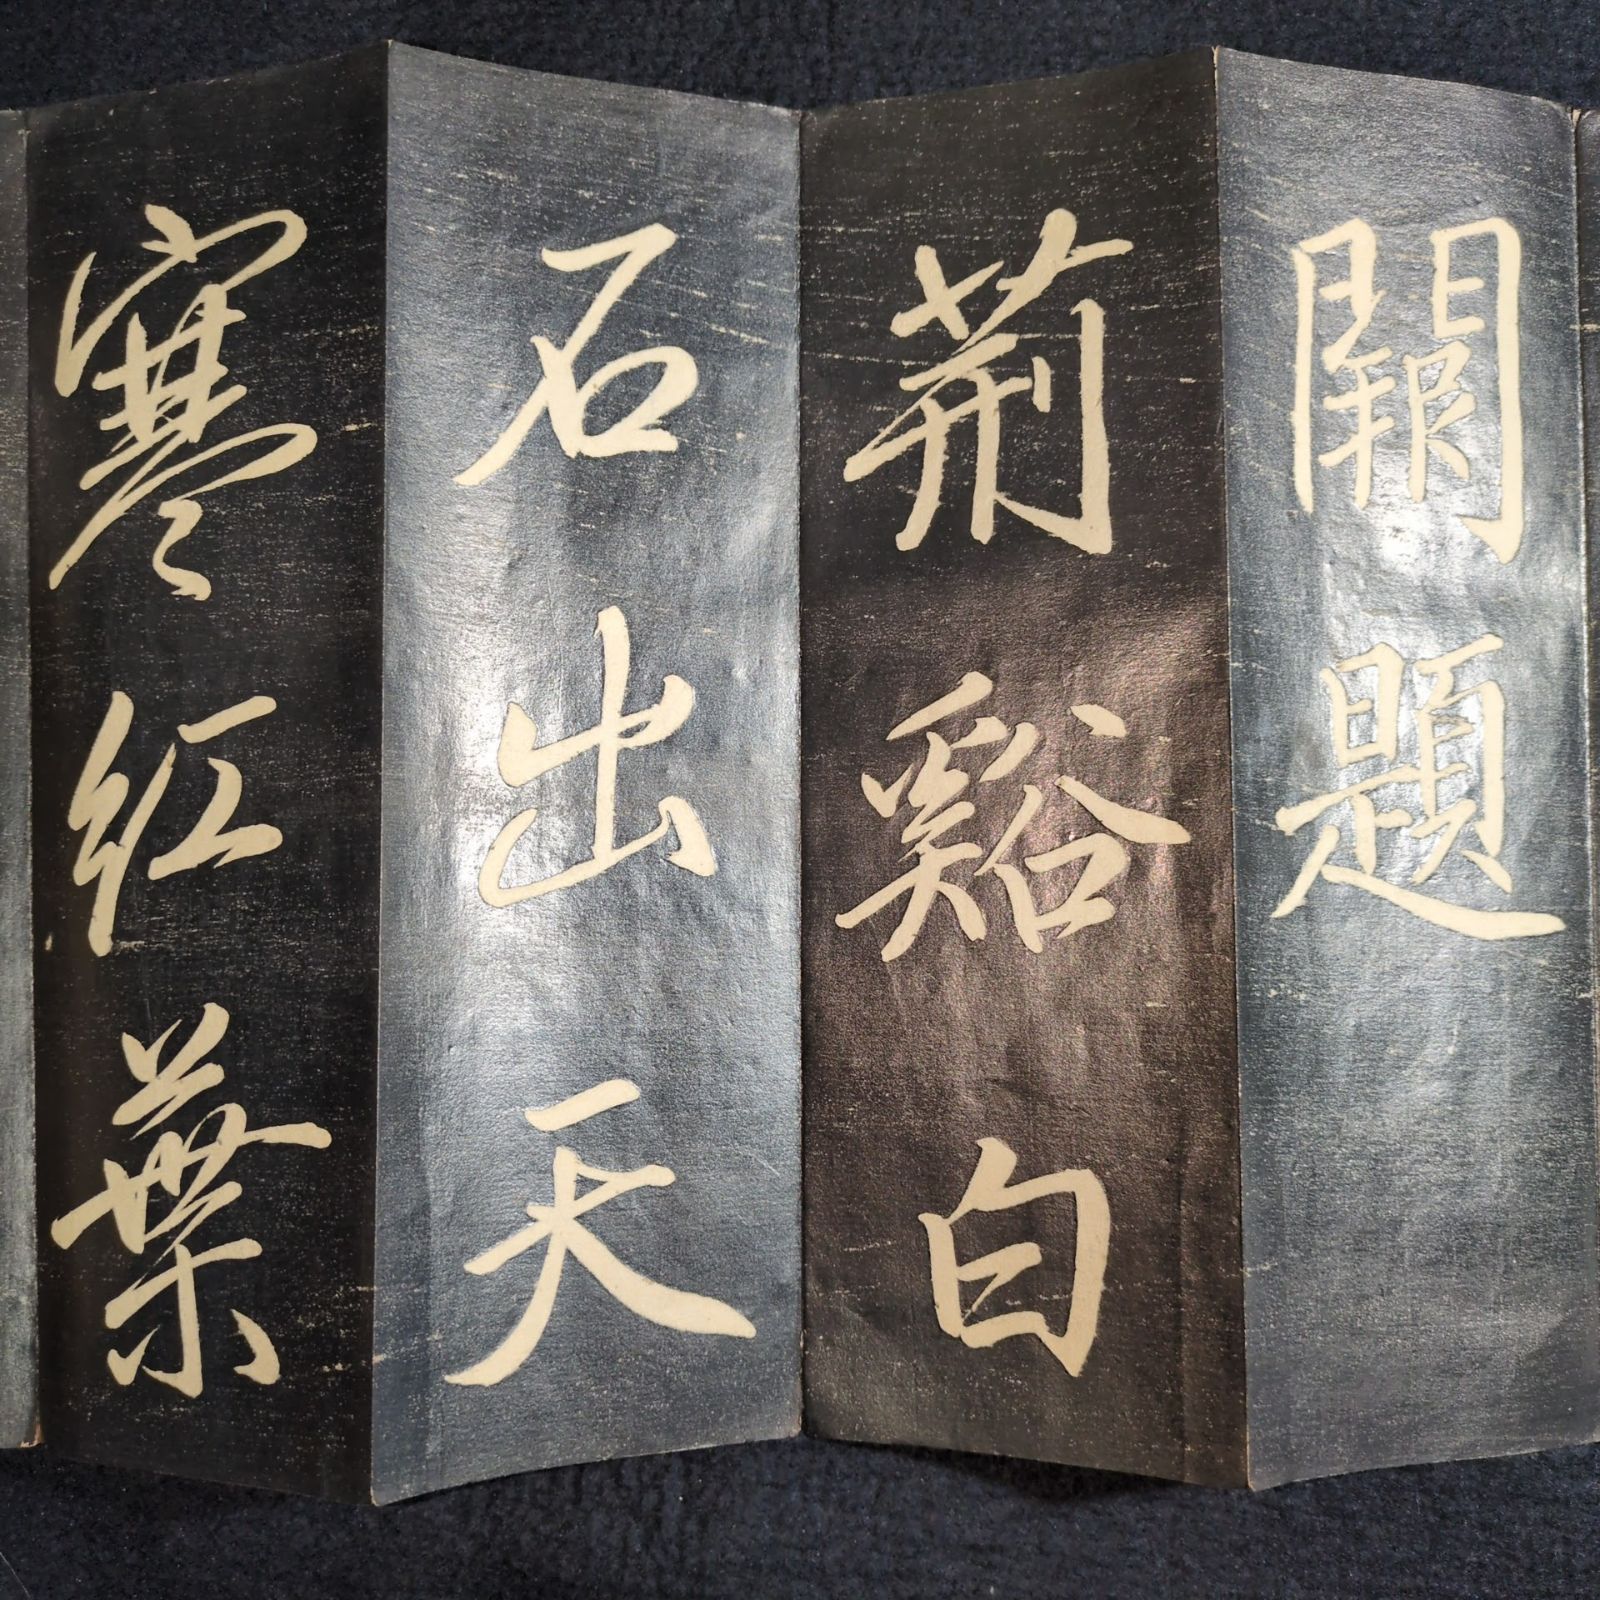 闕題
荊谿白
石出天
寒紅葉